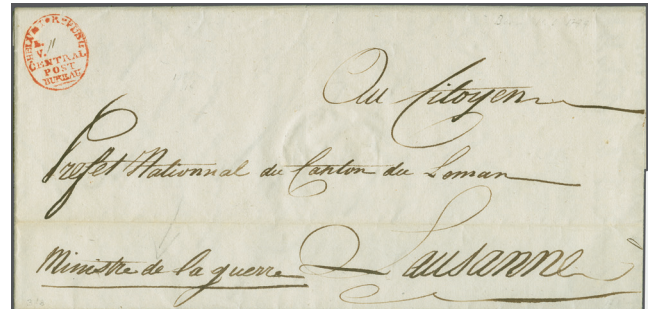 HELVET. REPUBL.
V.
CENTRAL
POST
BUREAU
Au Citoyen
Préfet Nationnal du Canton du Leman
Ministre de la guerre à Lausanne